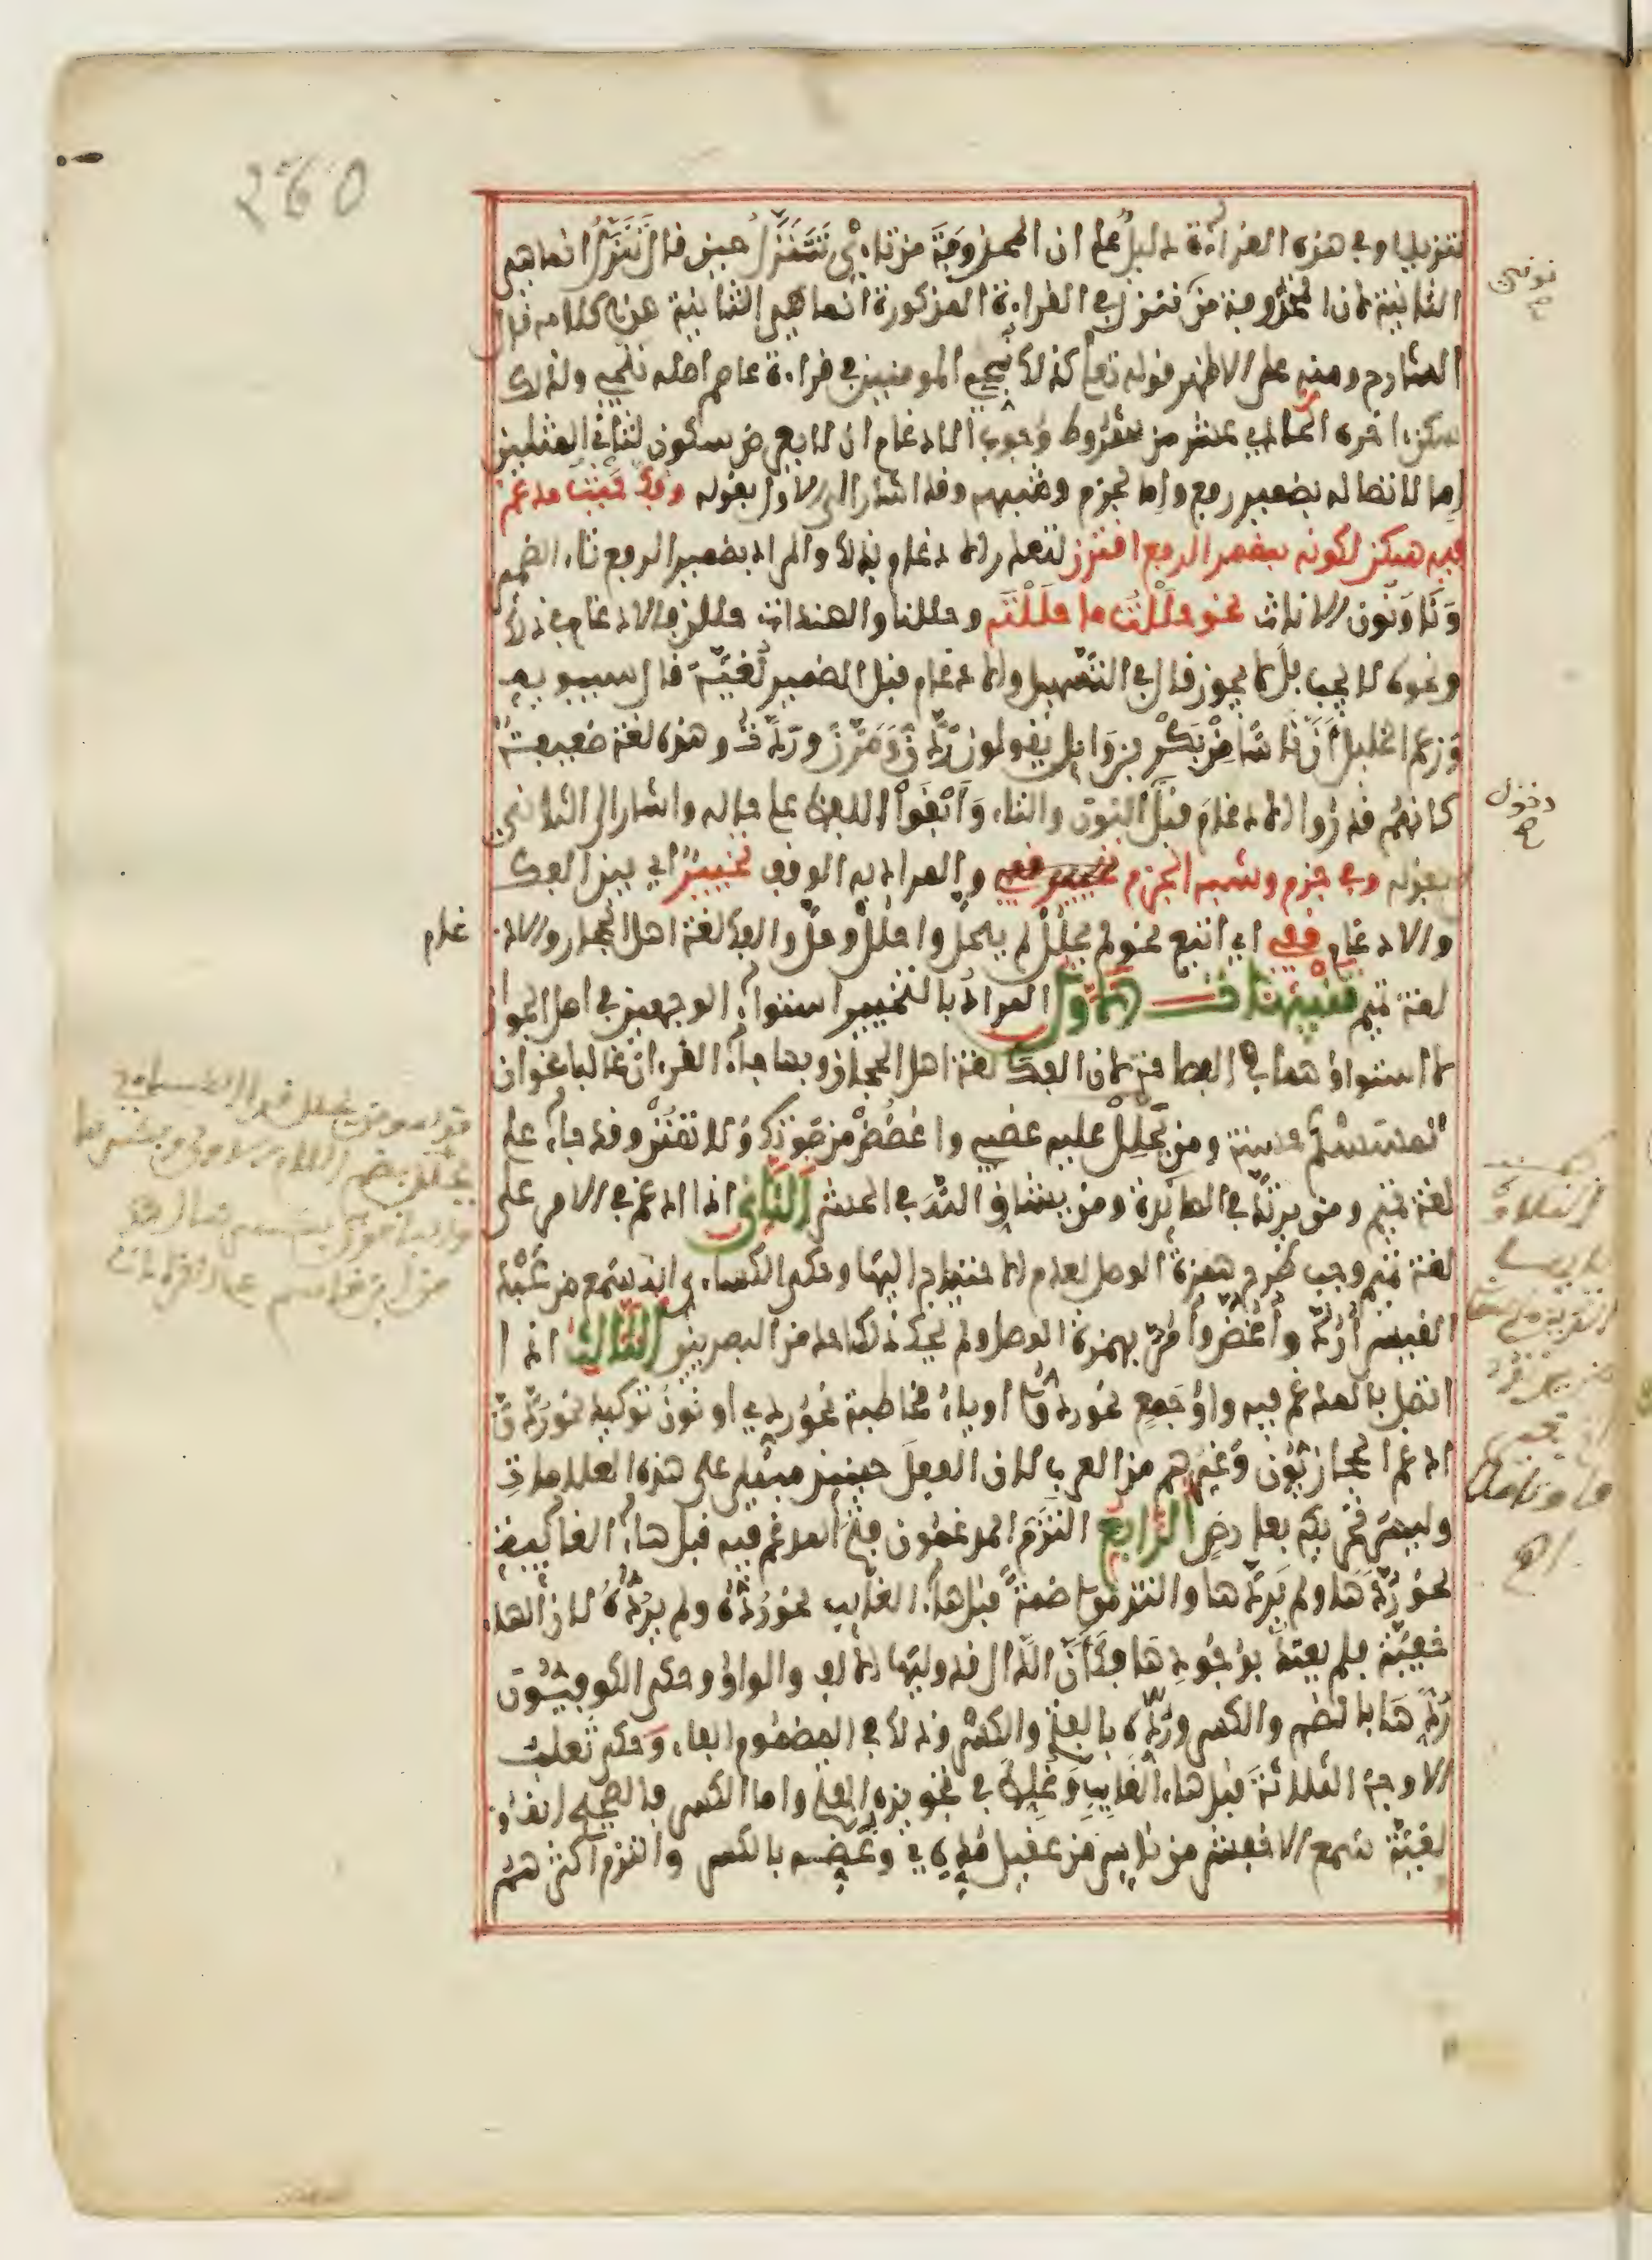 260
تنزيلا وفي هذه القراءة دليل على ان المحذوفة من تاءي تتنزل حين قال تنزل انما هي
الثانية لان المحذوفة من ننزل في القراءة المذكورة انما هي الثانية هذا كلامه قال
الشارح ومنه على الاظهر قوله تعلى كذلك نجي المومنين في قراءة عاصم اصله ننجي ولذلك
سكن اخره الحادي عشر من شروط وجوب الادغام ان لا يعرض سكون لثاني المثلين
اما لاتصاله بضمير رفع واما لجزم وشبهه وقد اشار الى الاول بقوله وفك حيث مدغم
فيه سكن لكونه بمضمر الرفع اقترن لتعذر الادغام بذلك والمراد بضمير الرفع تاء الضمير
ونا ونون الاناث نحو حللت ما حللته وحللنا والهندات حللن فالادغام في ذلك
ونحوه لا يجب بل لا يجوز قال في التسهيل والادغام قبل الضمير لغية قال سيبويه
وزعم الخليل أن ناسا من بكر بن وايل يقولون ردن ومرن وردت وهذه لغة ضعيفة
كانهم قدروا الادغام قبل النون والتاء وابقوا اللفظ على حاله واشار الى الثاني
بقوله وفي جزم وشبه الجزم تخيير قفي والمراد به الوقف تخيير اي بين الفك
والادغام قفي اي اتبع نحو لم يحلل لم يحل واحلل وحل والفك لغة اهل الحجاز والاد
غام
لغة تميم تنبيهات الاول المراد بالتخيير استواء الوجهين في اصل الجواز
لا استواؤهما في الفصاحة لان الفك لغة اهل الحجاز وبها جاء القرءان غالبا نحو ان
تمسسكم حسنة ومن يحلل عليه غضبي واغضض من صوتك ولا تمنن وقد جاء على
لغة تميم ومن يرتد في المايدة ومن يشاق الله في الحشر الثاني اذا ادغم في الامر على
لغة تميم وجب طرح همزة الوصل لعدم الاحتياج اليها وحكى الكساءي انه سمع من عبد
القيس أرد وأغض وأمر بهمزة الوصل ولم يحك ذلك احد من البصريين الثالث اذا
اتصل بالمدغم فيه واو جمع نحو ردوا او ياء مخاطبة نحو ردي او نون توكيد نحو ردن
ادغم الحجازيون وغيرهم من العرب لان الفعل حينئذ مبني على هذه العلامات
وليس تحريكه بعارض الرابع التزم المدغمون فتح المدغم فيه قبل هاء الغايبة
نحو ردها ولم يردها والتزموا ضمه قبل هاء الغايب نحو رده ولم يرده لان الهاء
خفية فلم يعتد بوجودها فكأن الدال قد وليها الالف والواو وحكى الكوفيون
ردها بالضم والكسر ورده بالفتح والكسر وذلك في المضموم الفاء وحكى ثعلب
الاوجه الثلاثة قبل هاء الغايب وغلط في تجويزه الفتح واما الكسر فالصحيح انه
لغية سمع الاخفش من ناس من عقيل مده وعضه بالكسر والتزم اكثرهم